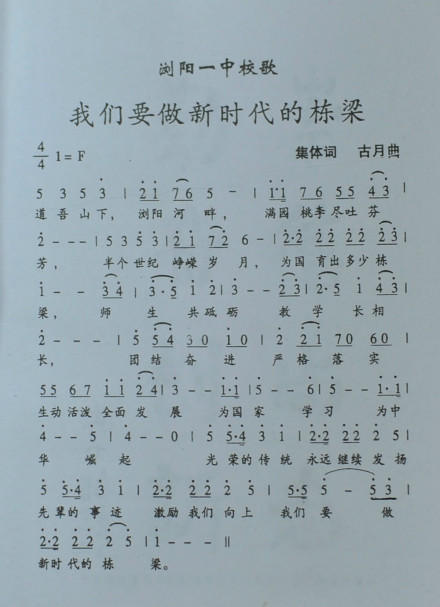 浏阳一中校歌
我们要做新时代的栋梁
4/4 1=F 集体词 古月曲
5 3 5 3 | 2 1 7 6 5 - | 1·1 7 6 5 5 4 3 |
道吾山下，浏阳河畔，满园桃李尽吐芬
2 - - - | 5 3 5 3 | 2 1 7 2 6 - | 2·2 2 2 2 2 2 3 |
芳，半个世纪峥嵘岁月，为国育出多少栋
1 - - 3 4 | 3·5 1 2 | 3 - - 2 3 | 2·5 1 4 3 |
梁，师生共砥砺教学长相
2 - - - | 5 5 5 4 3 0 1 0 | 2 2 2 1 7 0 6 0 |
长，团结奋进严格落实
5 5 6 7 1 1 2 4 | 3 - - 1·1 | 5 - - 6 | 5 - - 1·1 |
生动活泼全面发展为国家学习为中
4 - - 5 | 4 - - 0 | 5 5·4 3 1 | 2·2 2 2 2 5 |
华崛起光荣的传统永远继续发扬
5 5·4 3 1 | 2·2 2 2 2 5 | 5·5 5 - 5 3 |
先辈的事迹激励我们向上我们要做
2·2 2 2 2 5 | 1 - - - ‖
新时代的栋梁。